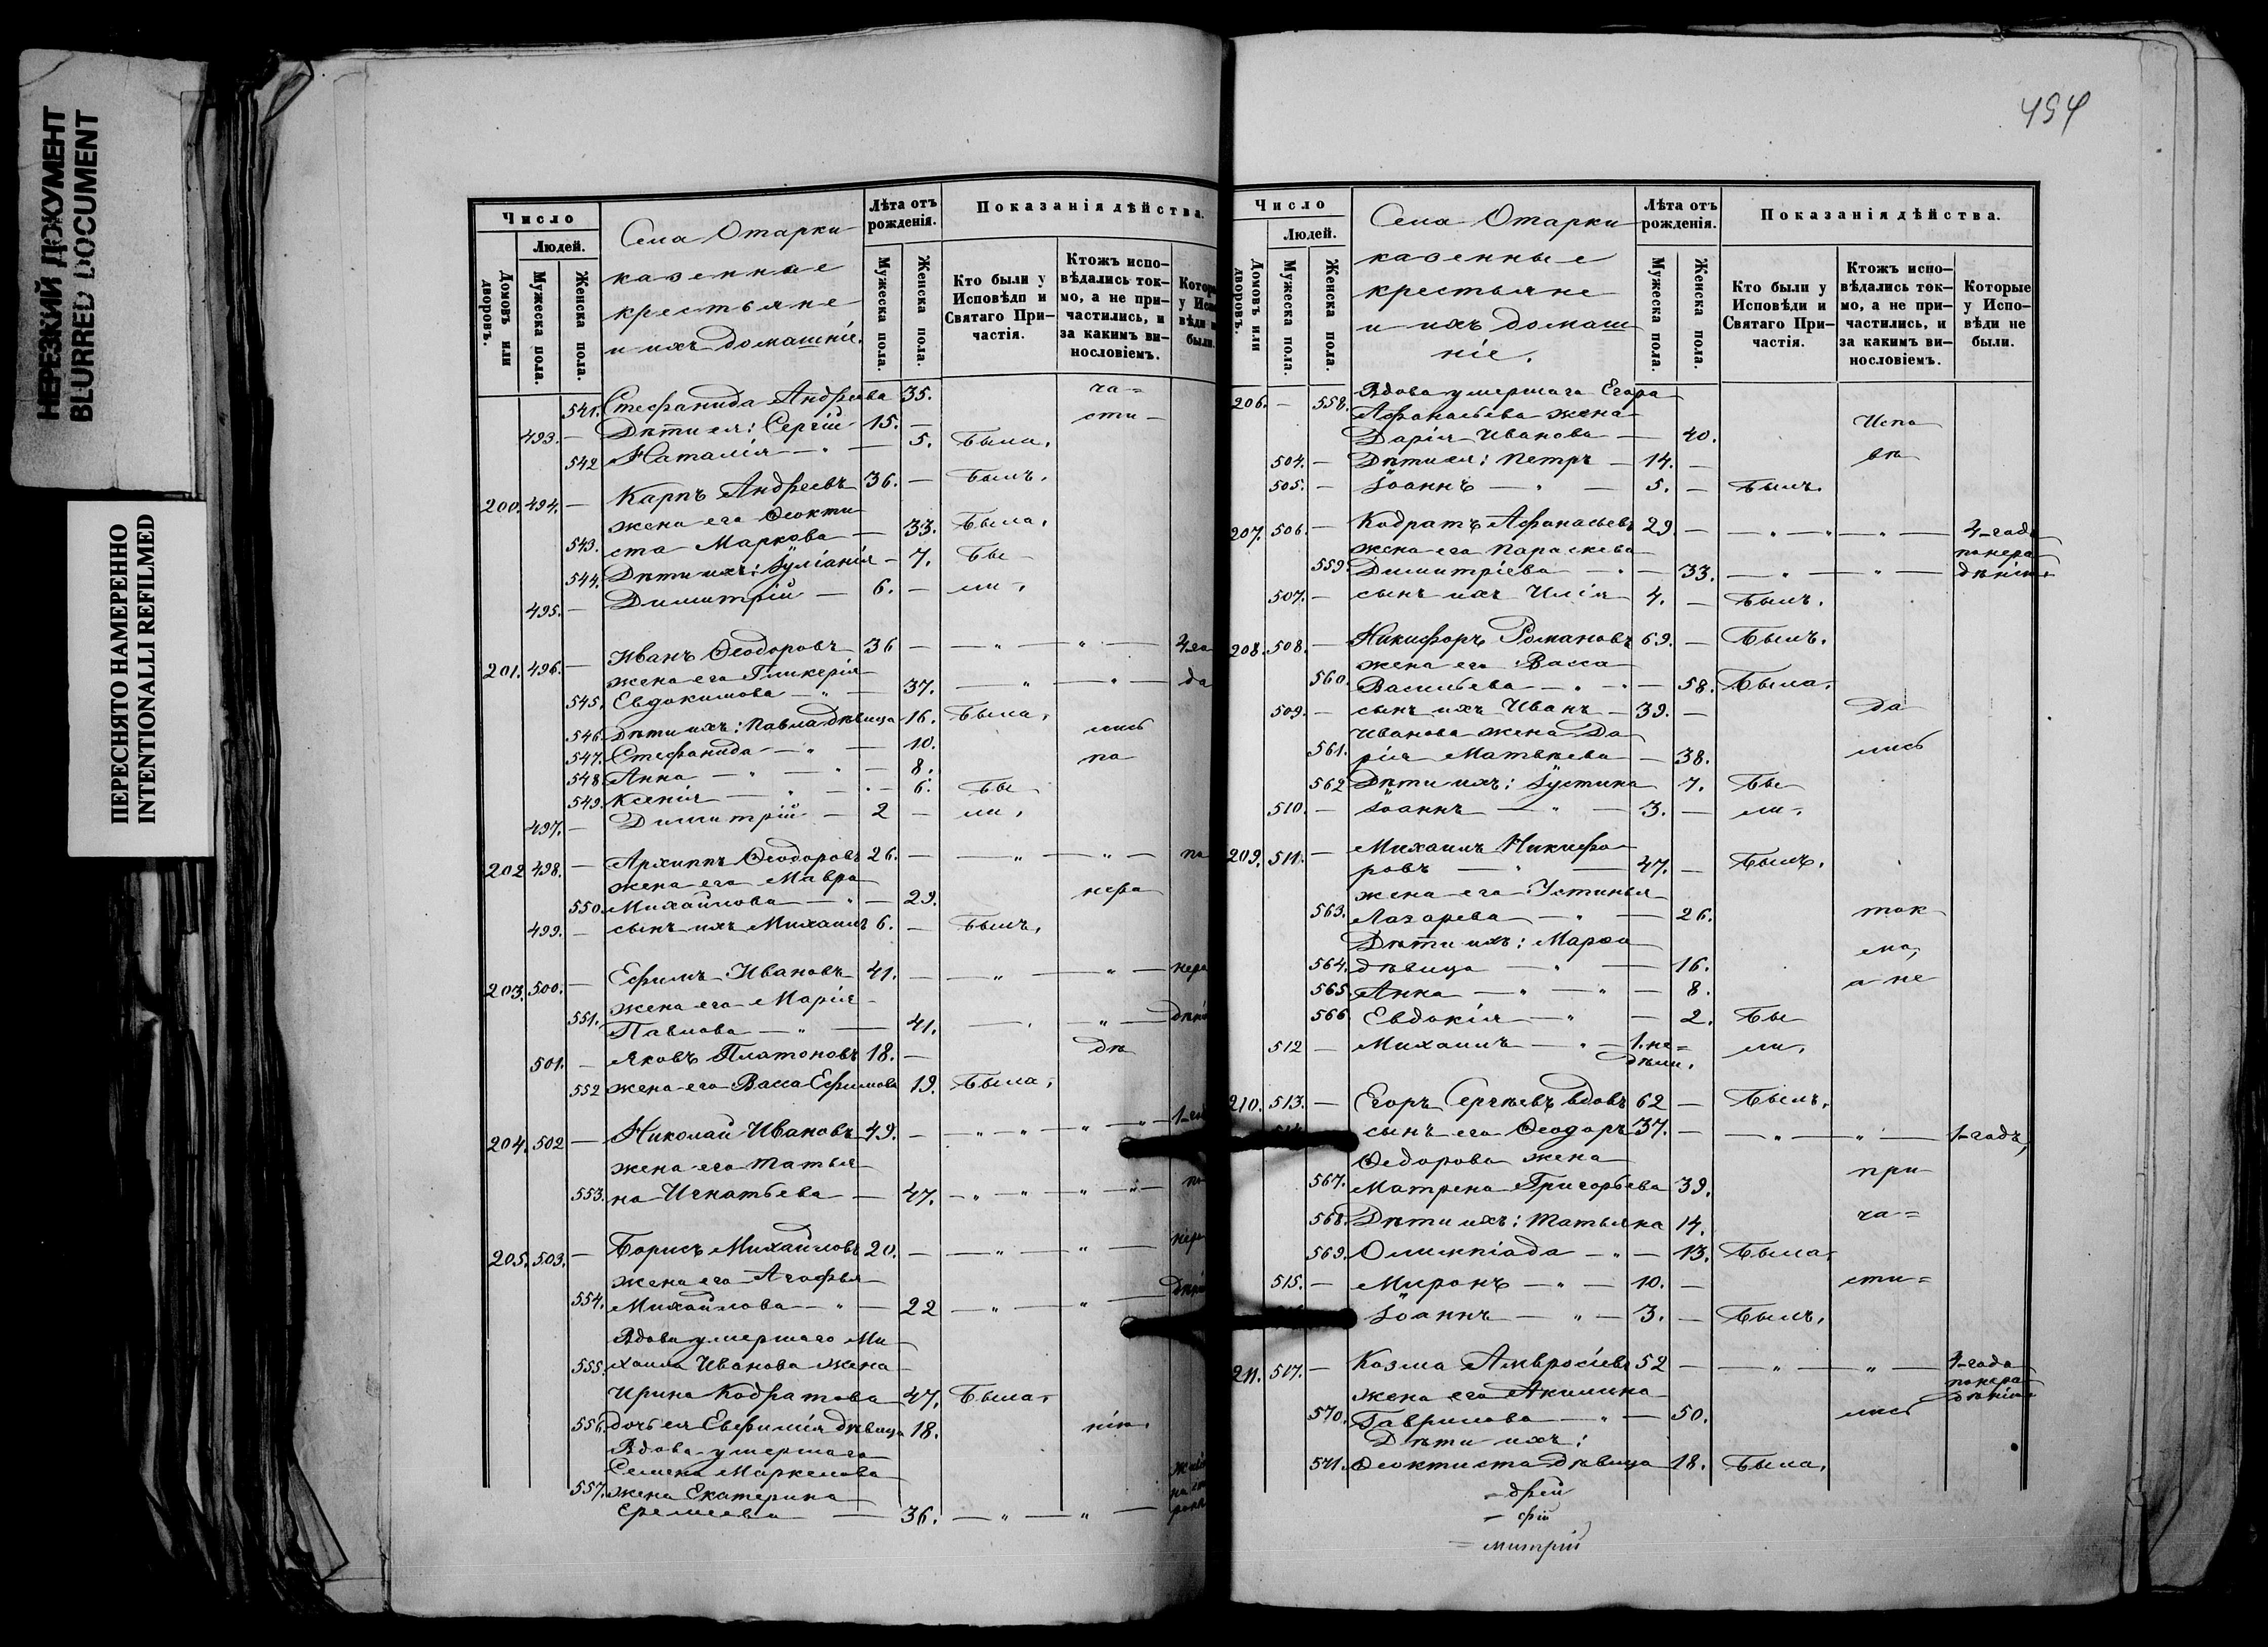 НЕРЕЗКИЙ ДОКУМЕНТ
BLURRED DOCUMENT
ПЕРЕСНЯТО НАМЕРЕННО
INTENTIONALLI REFILMED
Число
Людей.
Домовъ или дворовъ.
Мужеска пола.
Женска пола.
Села Отарки
казенные
крестьяне
и ихъ домашніе.
Лѣта отъ рожденія.
Мужеска пола.
Женска пола.
Показанія дѣйства.
Кто были у Исповѣди и Святаго Причастія.
Ктожъ исповѣдались токмо, а не причастились, и за какимъ винословіемъ.
541. Стефанида Андреева 35. ча=
493. — Дѣти ея: Сергій 15. — сти—
542 Наталія — " — 5. Была.
200. 494. — Карпъ Андреевъ 36. — Былъ.
жена его Ѳеокти
543. ста Маркова — 33. Была.
544. Дѣти ихъ: Іуліанія — 7. Бы—
495. — Димитрій — 6. — ли.
201. 496. — Иванъ Ѳеодоровъ 36 — — " — " —
жена его Гликерія
545. Евдокимова — " — 37. — " — " — да
546. Дѣти ихъ: Павла дѣвица 16. Была. лись
547. Стефанида — " — 10. по
548 Анна — " — " — 8.
549. Ксенія — " — " — 6. Бы
497. — Димитрій — 2 — ли.
202 498. — Архиппъ Ѳеодоровъ 26. — — " — " — по
жена его Мавра
550. Михайлова — " — 29. нера
499. — сынъ ихъ Михаилъ 6. — Былъ.
203. 500. — Ефимъ Ивановъ 41. — — " — " — нера
жена его Марія
551. Павлова — " — 41. — " — " —
501. — Яковъ Платоновъ 18. — дѣ
552 жена его Васса Ефимова 19. Была.
204. 502 — Николай Ивановъ 49. — — " — " — " — " —
жена его Татья
553. на Игнатьева — 47. — " — " — " — " — по
205. 503. — Борисъ Михайловъ 20. — — " — " — нера
жена его Агафья
554. Михайлова — " — 22 — " — " —
Вдова умершаго Ми
555. хаила Иванова жена
Ирина Кодратова 47. Была.
556. дочь ея Евфимія дѣвица 18. нію.
Вдова умершаго
Семена Маркелова
557. жена Екатерина
Еремеева — 36. — " — " —
494
Число
Людей.
Домовъ или дворовъ.
Мужеска пола.
Женска пола.
Села Отарки
казенные
крестьяне
и ихъ домаш
ніе.
Лѣта отъ рожденія.
Мужеска пола.
Женска пола.
Показанія дѣйства.
Кто были у Исповѣди и Святаго Причастія.
Ктожъ исповѣдались токмо, а не причастились, и за какимъ винословіемъ.
Которые у Исповѣди не были.
206. — 558. Вдова умершаго Егора
Афанасьева жена
Дарія Иванова — 40. Испо
504. — Дѣти ея: Петръ — 14. — вѣ
505. — Іоаннъ — " — 5. — Былъ.
207. 506. — Кодратъ Афанасьевъ 29. — — " — " — " — 4 года
жена его Параскева понера
559. Димитріева — " — 33. — " — " — дѣнію
507. — сынъ ихъ Илія 4. — Былъ.
208. 508. — Никифоръ Романовъ 69. — Былъ.
жена его Васса
560. Васильева — " — " — 58. Была.
509. — сынъ ихъ Иванъ — 39. — да
Иванова жена Да
561. рія Матвѣева — 38. лись
562 Дѣти ихъ: Іустина 7. Бы
510. — Іоаннъ — " — 3. — ли.
209. 511. — Михаилъ Никифо
ровъ — " — 47. — Былъ.
жена его Устинья
563. Лазарева — " — 26. ток
Дѣти ихъ: Марѳа мо,
564. дѣвица — " — 16.
565. Анна — " — " — 8. а не
566. Евдокія — " — 2. Бы
512 — Михаилъ — " — 1. не= ли.
дѣли.
210. 513. — Егоръ Сергѣевъ вдовъ 62 — Былъ.
сынъ его Ѳеодоръ 37. — — " — " — 1 годъ,
Ѳедорова жена
567. Матрена Григорьева 39. при
568. Дѣти ихъ: Татьяна 14. ча=
569. Олимпіада — " — 13. Была.
515. — Миронъ — " — 10. — сти=
Іоаннъ — " — 3. — Былъ.
211. 517. — Козма Амвросіевъ 52 — — " — " —
понера
жена его Акилина дѣнію
570. Гаврилова — " — 50. лись
Дѣти ихъ:
571. Ѳеоктиста дѣвица 18. Была.
— дрей
— фій
— митрій